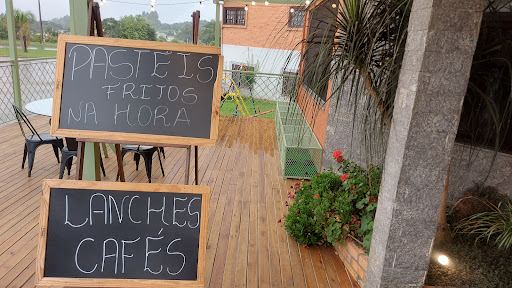 PASTÉIS
FRITOS
NA HORA
LANCHES
CAFÉS